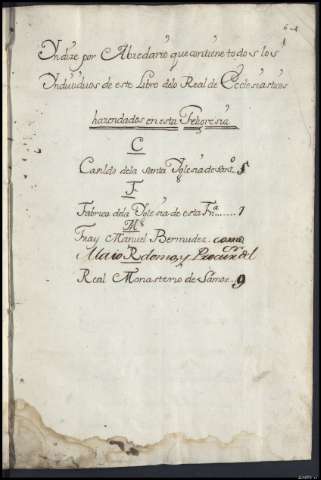 Yndize por Abzedario que contiene todos los
Yndividuos de este Libro delo Real de Eclesiasticos
hazendados en esta Feligresia
C
Cavildo dela santa Yglesia de 5
F
Fabrica dela Yglesia de esta Fra 7
M
Fray Manuel Bermudez como
R
Real Monasterio de Samos 9